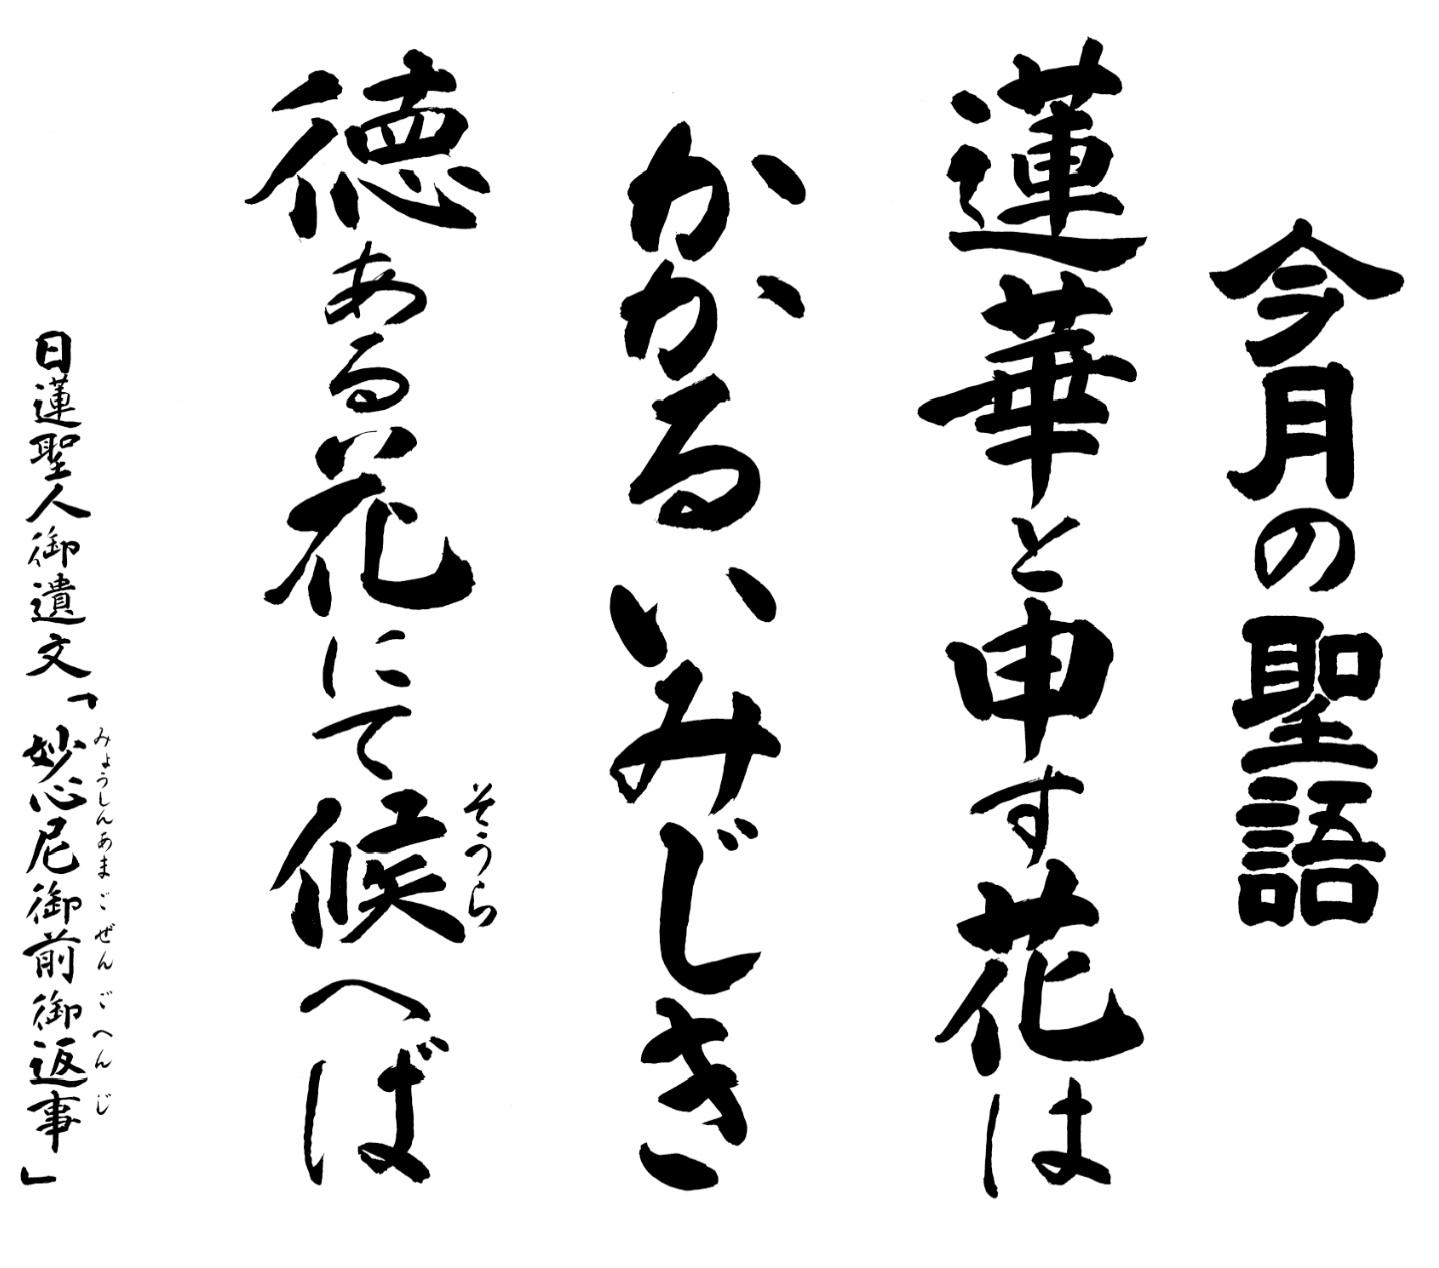 今月の聖語
蓮華と申す花は
かかるいみじき
徳ある花にて候へば
そうら
日蓮聖人御遺文「妙心尼御前御返事」
みょうしんあまごぜんごへんじ